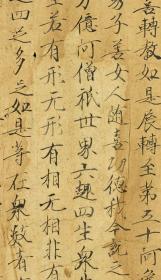 喜轉教如是展轉至第五十阿
男子善女人随喜功德我今說之
万億阿僧祇世界六趣四生衆生
生若有形无形有想无想非有
足四足多足如是等在衆數者